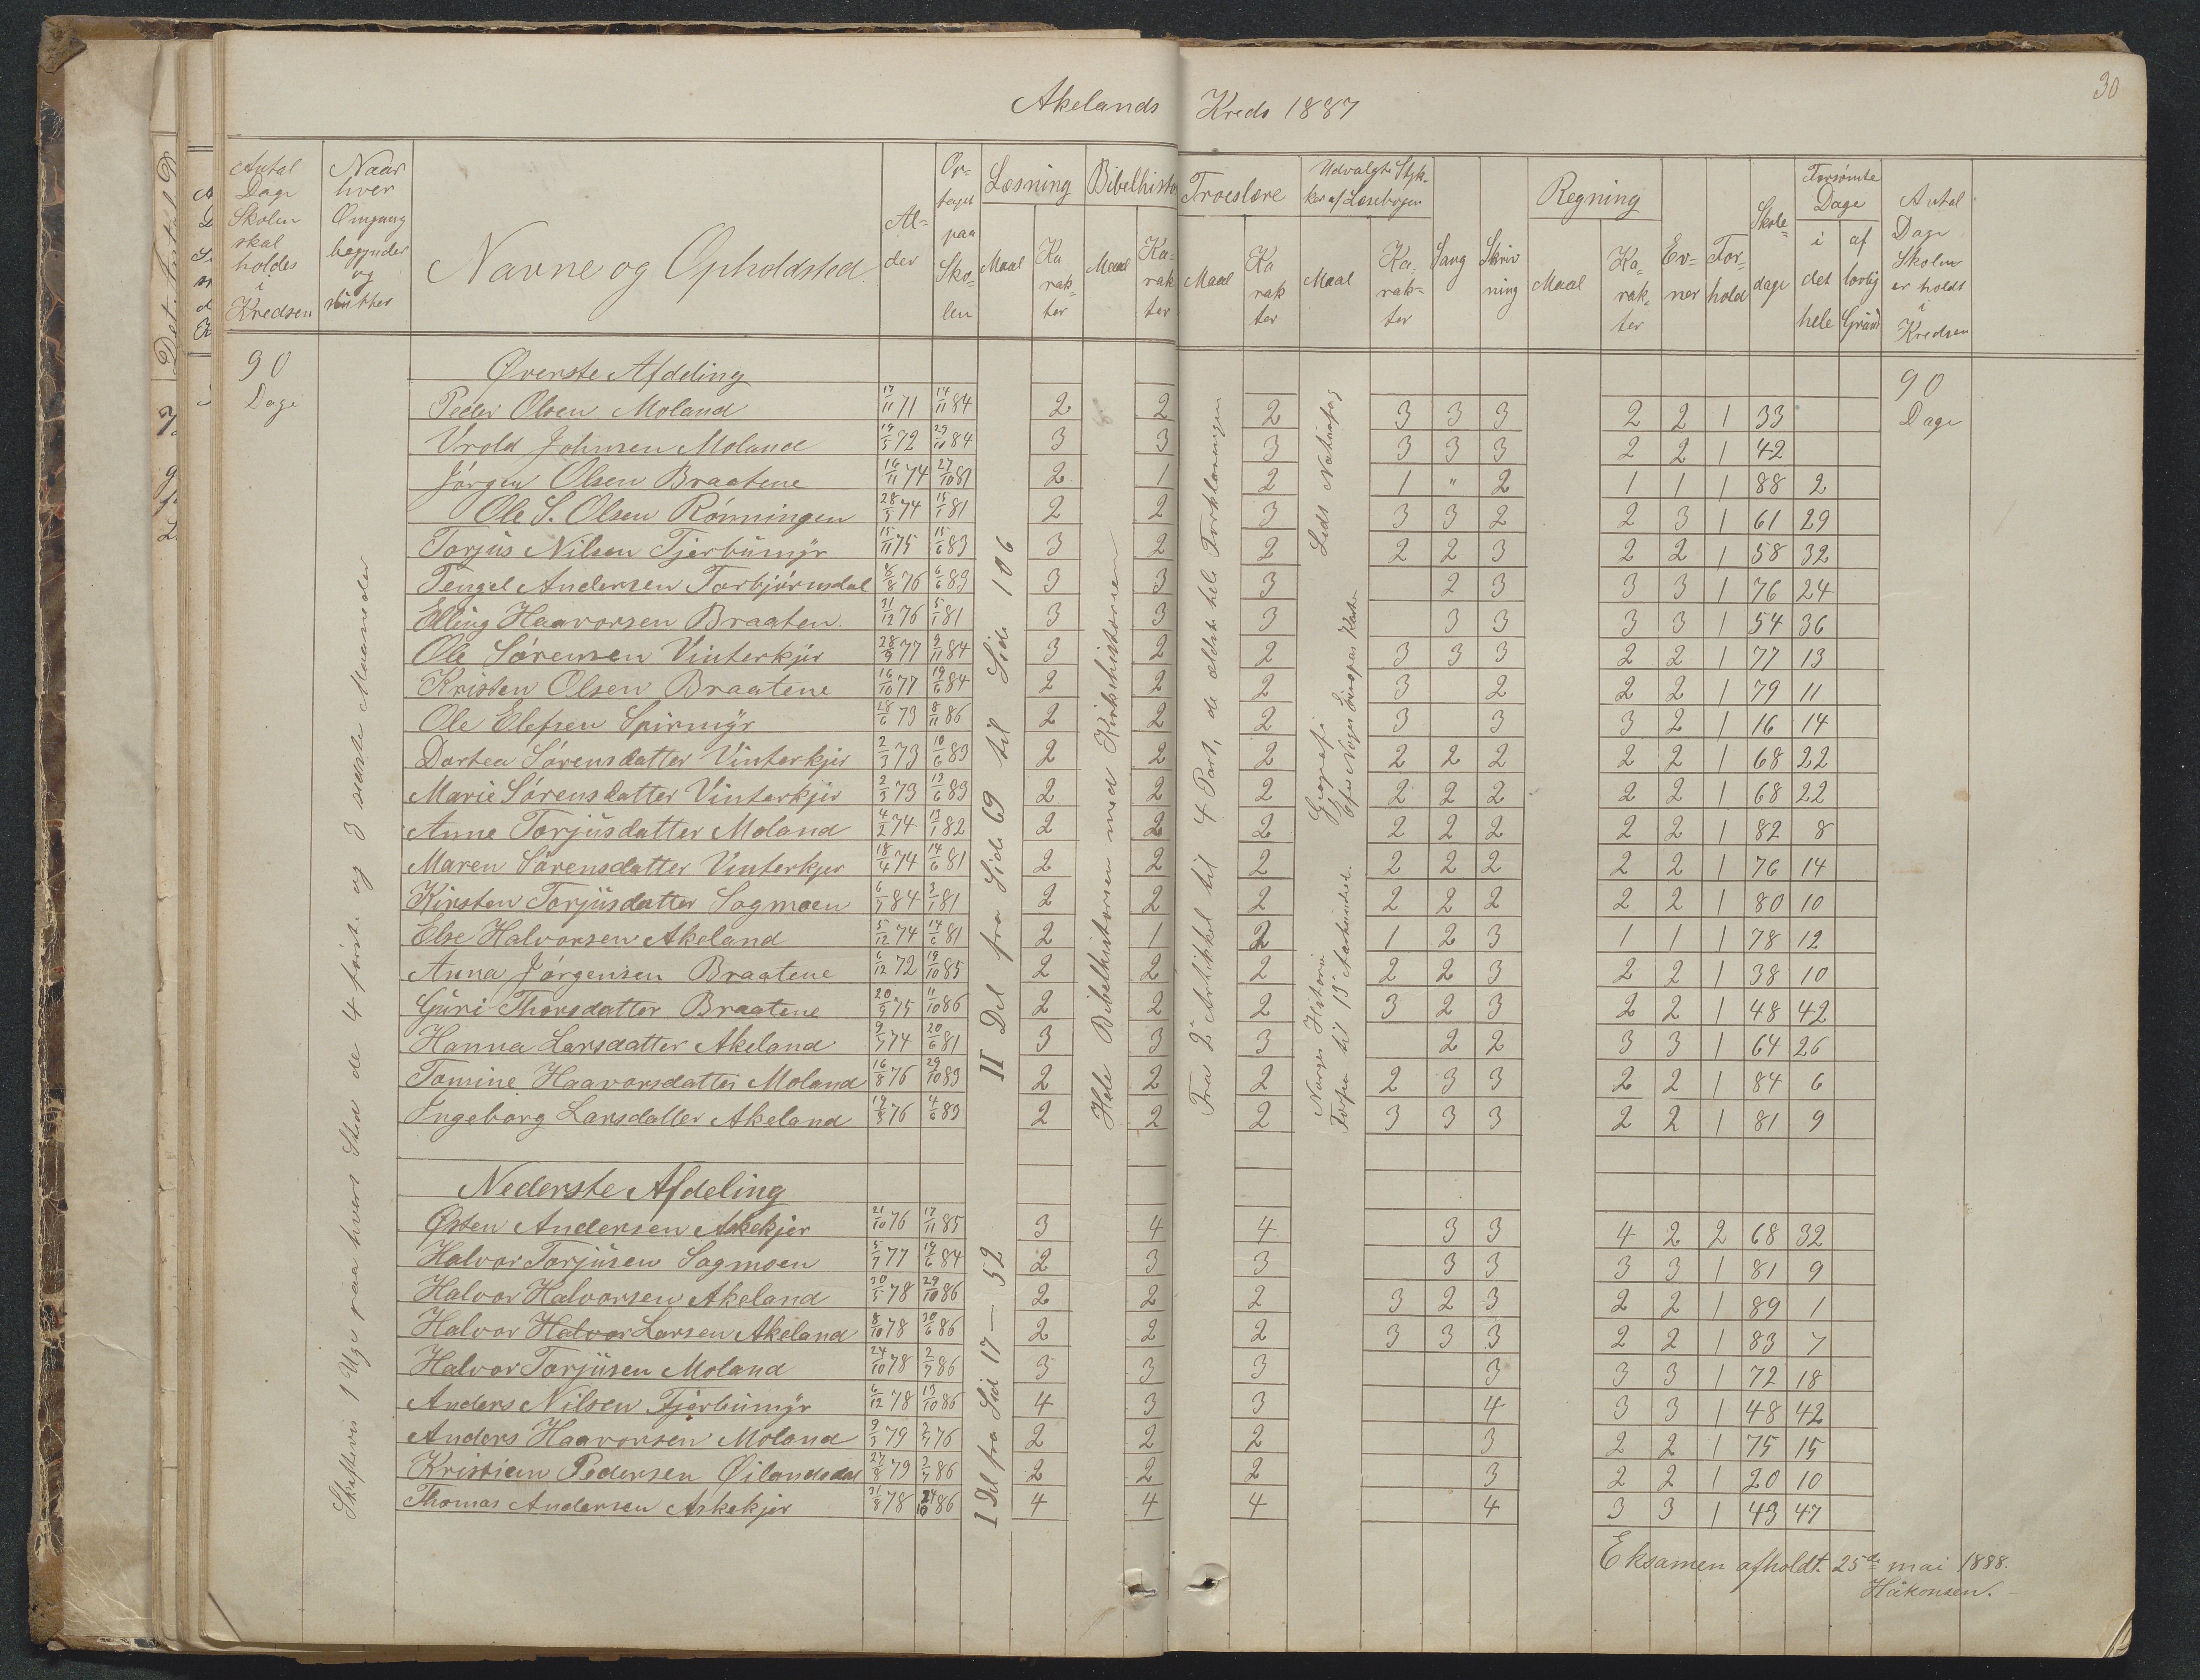 30
Akelands Kreds 1887
Antal Dage Skolen skal holdes i Kredsen
Naar hver Omgang begynder og slutter
Navne og Opholdsted
Alder
Optaget paa Skolen
Læsning Maal Karakter
Bibelhisto Maal Karakter
Troeslære Maal Karakter
Udvalgte Stykker af Læsebogen Maal Karakter
Sang
Skrivning
Regning Maal Karakter
Evner
Forhold
Skoledage
Forsømte Dage i det hele af lovlig Grund
Antal Dage Skolen er holdt i Kredsen
90 Dage
Skiftevis 1 Uge paa hvert Sted de 4 første og 3 sidste Maaneder
II Del fra Side 69 til Side 106
Hele Bibelhistorien med Kirkehistorien
Fra 2 Artikkel til 4 Part, de ældste hele Forklaringen
Norges Historie
til 13 Aarhundrede
Geografi
Norges Europas Karter
90 Dage
Øverste Afdeling
Peder Olsen Moland 17/11 71 14/11 84 2 2 2 3 3 3 2 2 1 33
Vrold Johnsen Moland 19/5 72 29/10 84 3 3 3 3 3 3 2 2 1 42
Jørgen Olsen Braatene 16/11 74 27/10 81 2 1 2 1 " 2 1 1 1 88 2
Ole S. Olsen Rønningen 28/5 74 15/1 81 2 2 3 3 3 2 2 3 1 61 29
Torjus Nilsen Tjerbumyr 15/11 75 15/6 83 3 2 2 2 2 3 2 2 1 58 32
Tengel Andersen Torbjørnsdal 8/8 76 6/6 83 3 3 3 2 3 3 3 1 76 24
Elling Haavorsen Braaten 31/12 76 5/1 81 3 3 3 3 3 3 3 1 54 36
Ole Sørensen Vinterkjer 28/9 77 9/11 84 3 2 2 3 3 3 2 2 1 77 13
Kristen Olsen Braatene 16/10 77 19/6 84 2 2 2 3 2 2 2 1 79 11
Ole Elefsen Spirmyr 28/6 73 8/11 86 2 2 2 3 3 3 2 1 16 14
Dortea Sørensdatter Vinterkjer 2/3 73 10/6 83 2 2 2 2 2 2 2 2 1 68 22
Marie Sørensdatter Vinterkjer 2/3 73 13/6 83 2 2 2 2 2 2 2 2 1 68 22
Anne Torjusdatter Moland 4/2 74 13/1 82 2 2 2 2 2 2 2 2 1 82 8
Maren Sørensdatter Vinterkjer 18/4 74 14/6 81 2 2 2 2 2 2 2 2 1 76 14
Kirsten Torjusdatter Sagmoen 6/7 84 3/1 81 2 2 2 2 2 2 2 2 1 80 10
Else Halvorsen Akeland 5/12 74 14/6 81 2 1 2 1 2 3 1 1 1 78 12
Anna Jørgensen Braatene 6/12 72 19/10 85 2 2 2 2 2 3 2 2 1 38 10
Guri Thorsdatter Braatene 20/9 75 11/10 86 2 2 2 3 2 3 2 2 1 48 42
Hanna Larsdatter Akeland 9/7 74 20/6 81 3 3 3 2 2 3 3 1 64 26
Tomine Haavorsdatter Moland 16/8 76 29/10 83 2 2 2 2 3 3 2 2 1 84 6
Ingeborg Larsdatter Akeland 19/8 76 4/6 83 2 2 2 3 3 3 2 2 1 81 9
Nederste Afdeling
I Del fra Sid 17 — 52
Østen Andersen Askekjer 21/10 76 17/11 85 3 4 4 3 3 4 2 2 68 32
Halvor Torjusen Sagmoen 5/7 77 19/6 84 2 3 3 3 3 3 3 1 81 9
Halvor Halvorsen Akeland 30/5 78 29/10 86 2 2 2 3 2 3 2 2 1 89 1
Halvor Halvor Larsen Akeland 8/10 78 30/6 86 2 2 2 3 3 3 2 2 1 83 7
Halvor Torjusen Moland 24/10 78 2/7 86 3 3 3 3 3 3 1 72 18
Anders Nilsen Tjerbumyr 6/12 78 13/10 86 4 3 3 4 3 3 1 48 42
Anders Haavorsen Moland 9/3 79 2/7 76 2 2 2 3 2 2 1 75 15
Kristian Pedersen Øilandsdal 27/8 79 2/7 86 2 2 2 3 2 2 1 20 10
Thomas Andersen Askekjer 31/8 78 24/10 86 4 4 4 4 3 3 1 43 47
Eksamen afholdt 25de mai 1888.
Håkonsen.